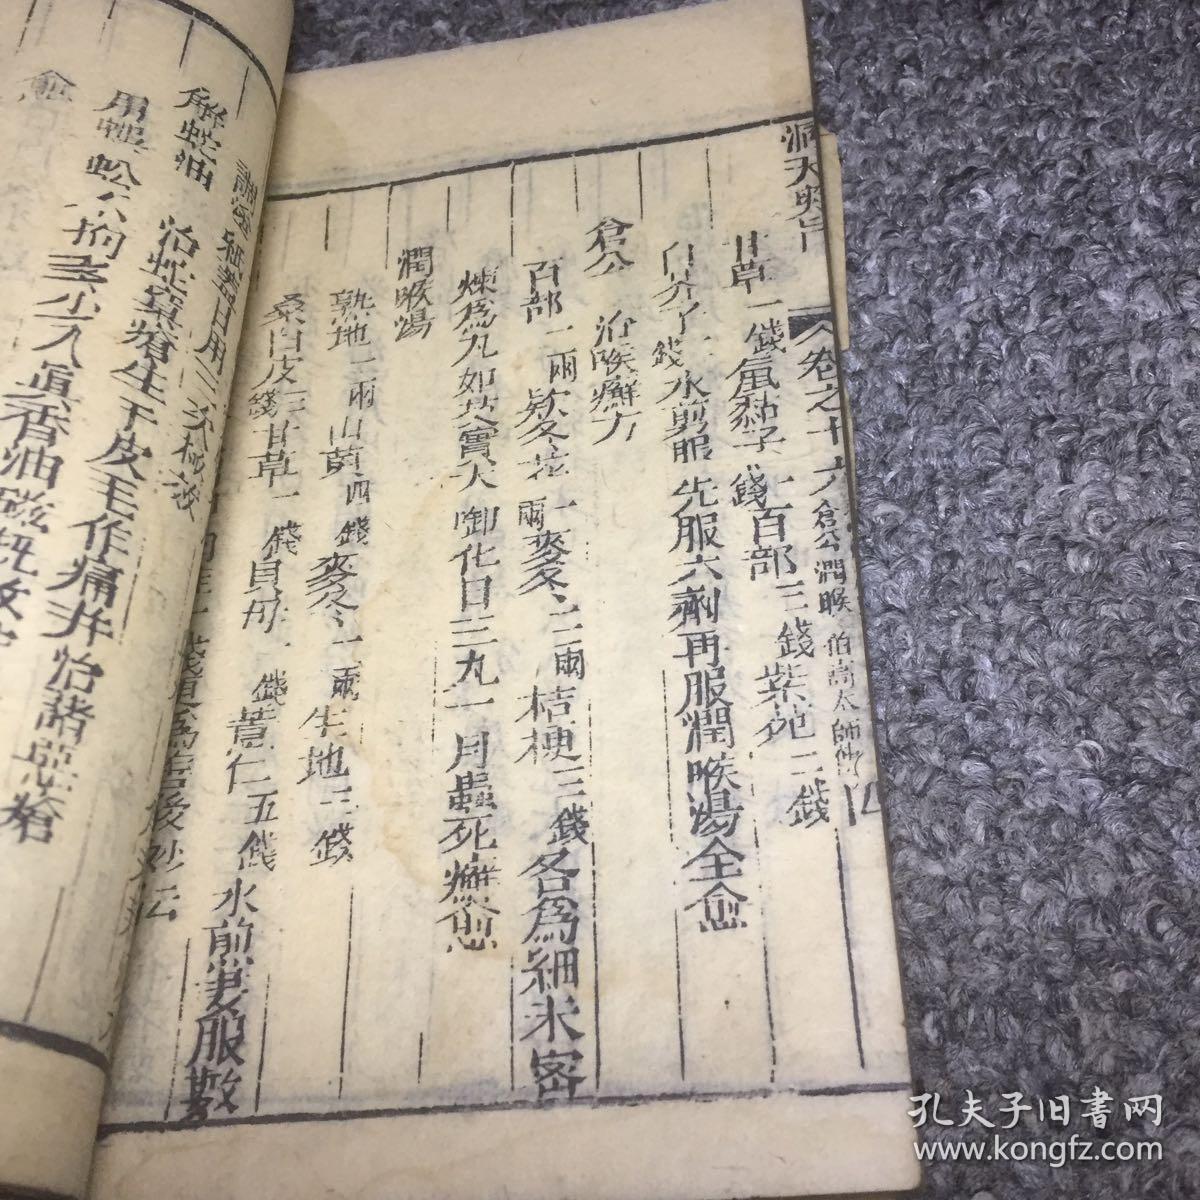 洞天奧旨 卷之十六 倉公 潤喉 伯高太師 四
甘草一錢鼠黏子一錢百部三錢紫苑二錢
白芥子一錢水剪服先服六劑再服潤喉湯全愈
倉公 治喉癬方
百部一兩欵冬花一兩麥冬二兩桔梗三錢各為細米密
煉為丸如芡實大卸化日三丸一月蟲死癬愈
潤喉湯
熟地二兩山萸四錢麥冬一兩生地三錢
桑白皮三錢甘草一錢貝母一錢薏仁五錢水煎妻服數
後妙法
調塗紙蓋日用三次極效
解蛇油 治蛇窠瘡生于皮毛作痛并治諸惡瘡
用蜈蚣不拘多少入真香油磁瓶收
愈
孔夫子旧書网
www.kongfz.com